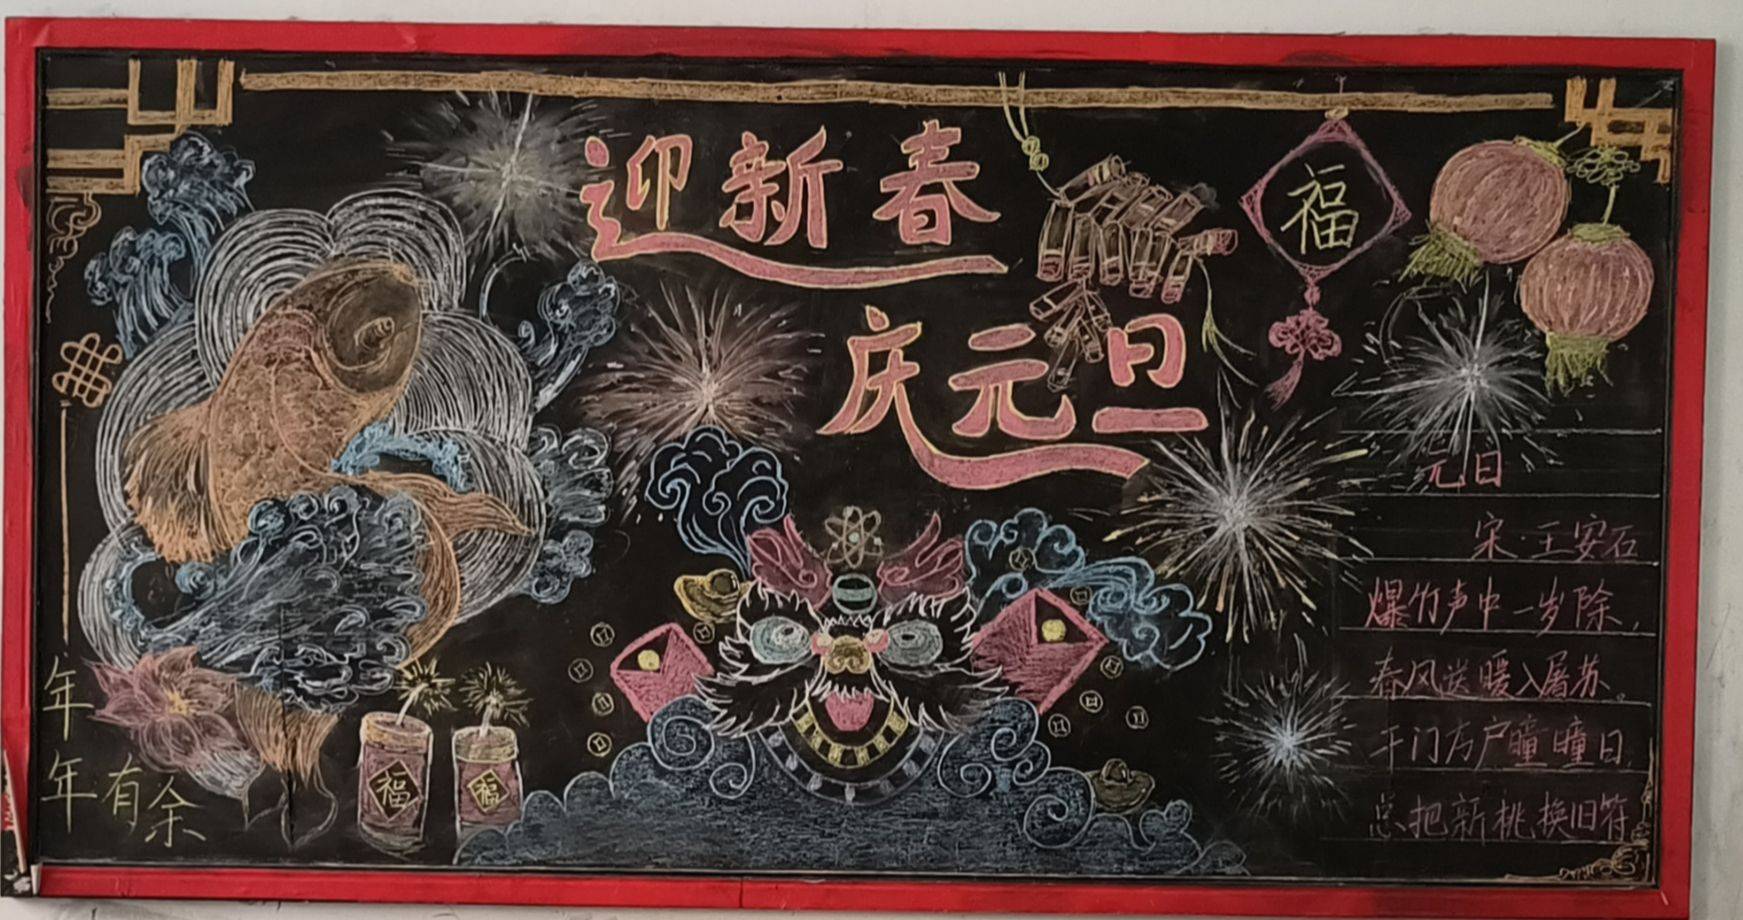 迎新春
庆元旦
福
元日
宋·王安石
爆竹声中一岁除,
春风送暖入屠苏。
千门万户瞳瞳日,
总把新桃换旧符
年年有余
福
福